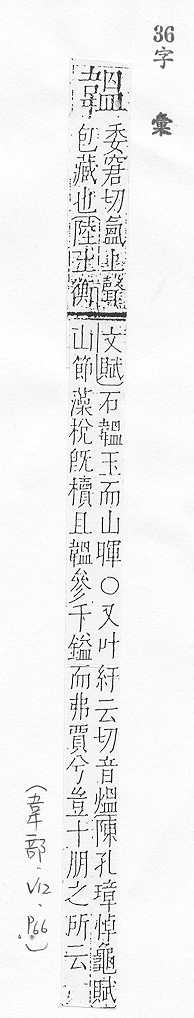 36
字彙
韞
委窘切氳上聲
包藏也陸士衡
文賦石韞玉而山暉○又叶紆云切音熅陳孔璋悼龜賦
山節藻梲旣櫝且韞參千鎰而弗賈兮豈十朋之所云
(韋部.V12.P66.)